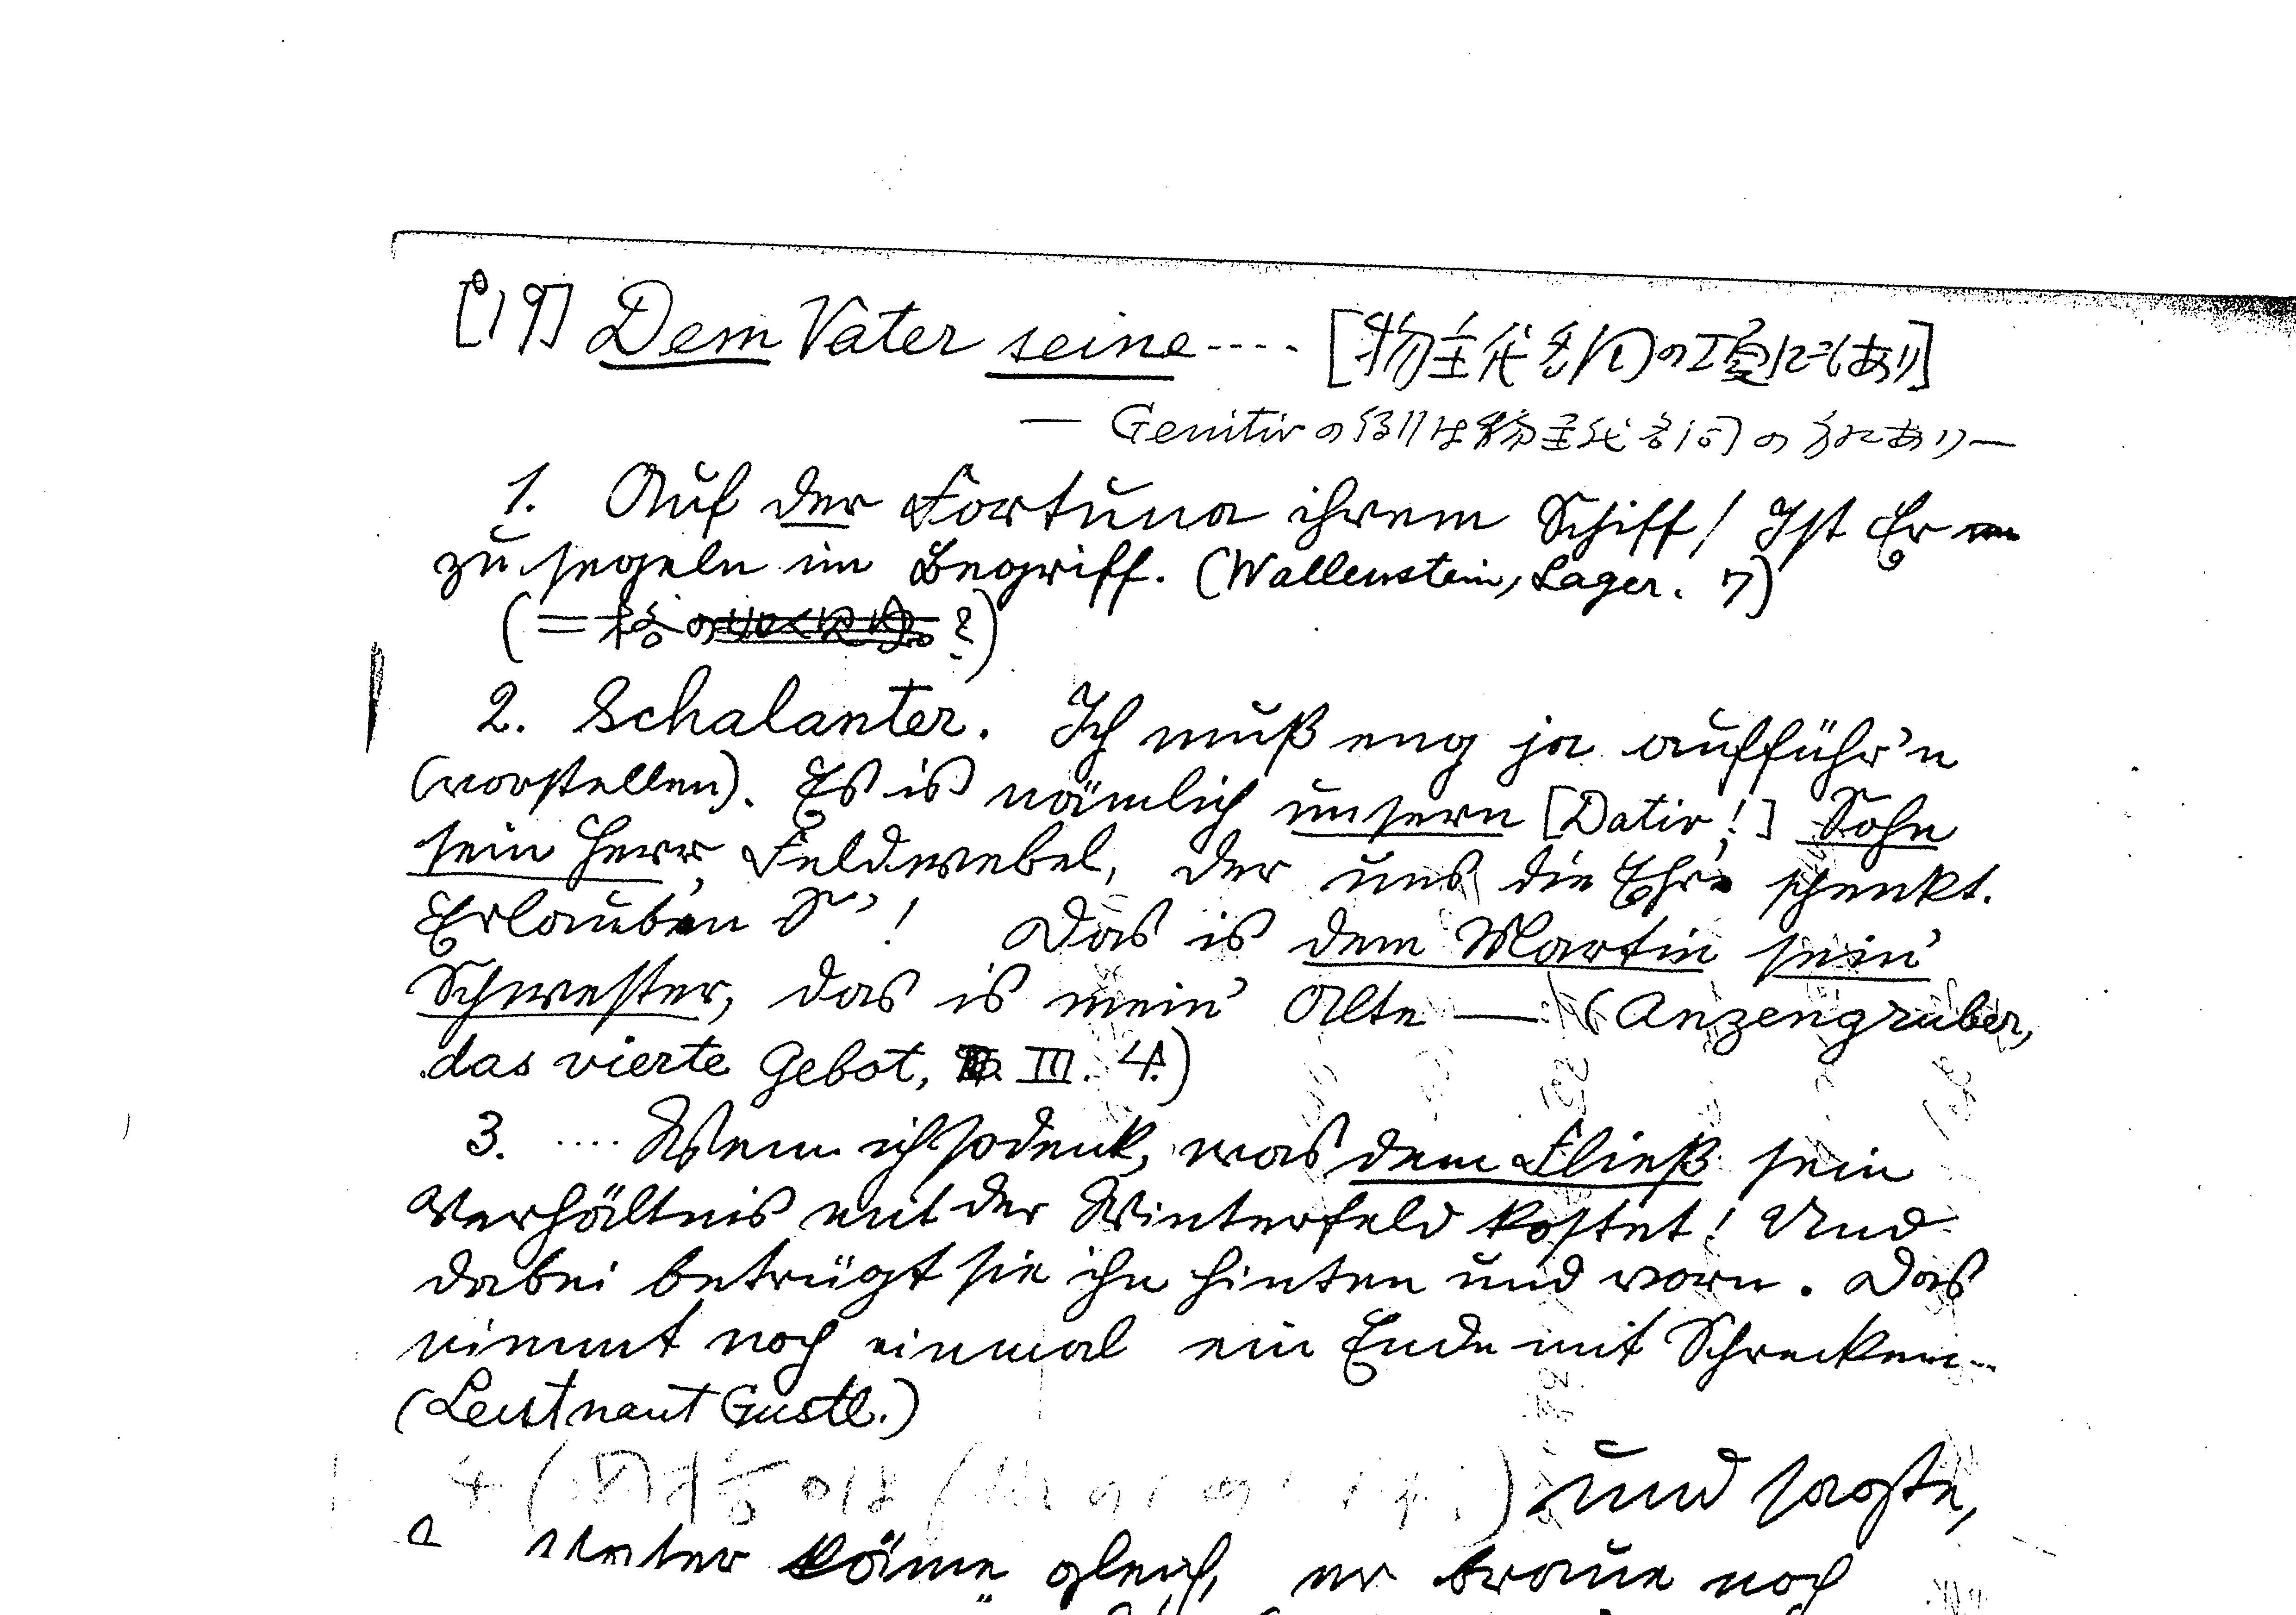 [19] Dem Vater seine .... [物主代名詞の項にもあり]
— Genitivの例は物主代名詞の方にあり—
1. Auf der Fortuna ihrem Schiff / Ist Er
zu segeln im Begriff. (Wallenstein, Lager. 7)
(= 格の ?)
2. Schalanter. Ich muß eng ja aufführ'n
(vorstellen). Es is nämlich unsern [Dativ!] Sohn
sein Herr Feldwebel, der uns die Ehre schenkt.
Erlauben S'! Das is dem Martin sein'
Schwester, das is mein' Alte — (Anzengruber,
das vierte Gebot, III. 4.)
3. .... Wenn ich so denk, was dem Fließ sein
Verhältnis mit der Winterfeld kostet! Und
dabei betrügt sie ihn hinten und vorn. Das
nimmt noch einmal ein Ende mit Schrecken...
(Leutnant Gustl.)
4 ( ) und sagte,
Vater käme gleich, er braue noch